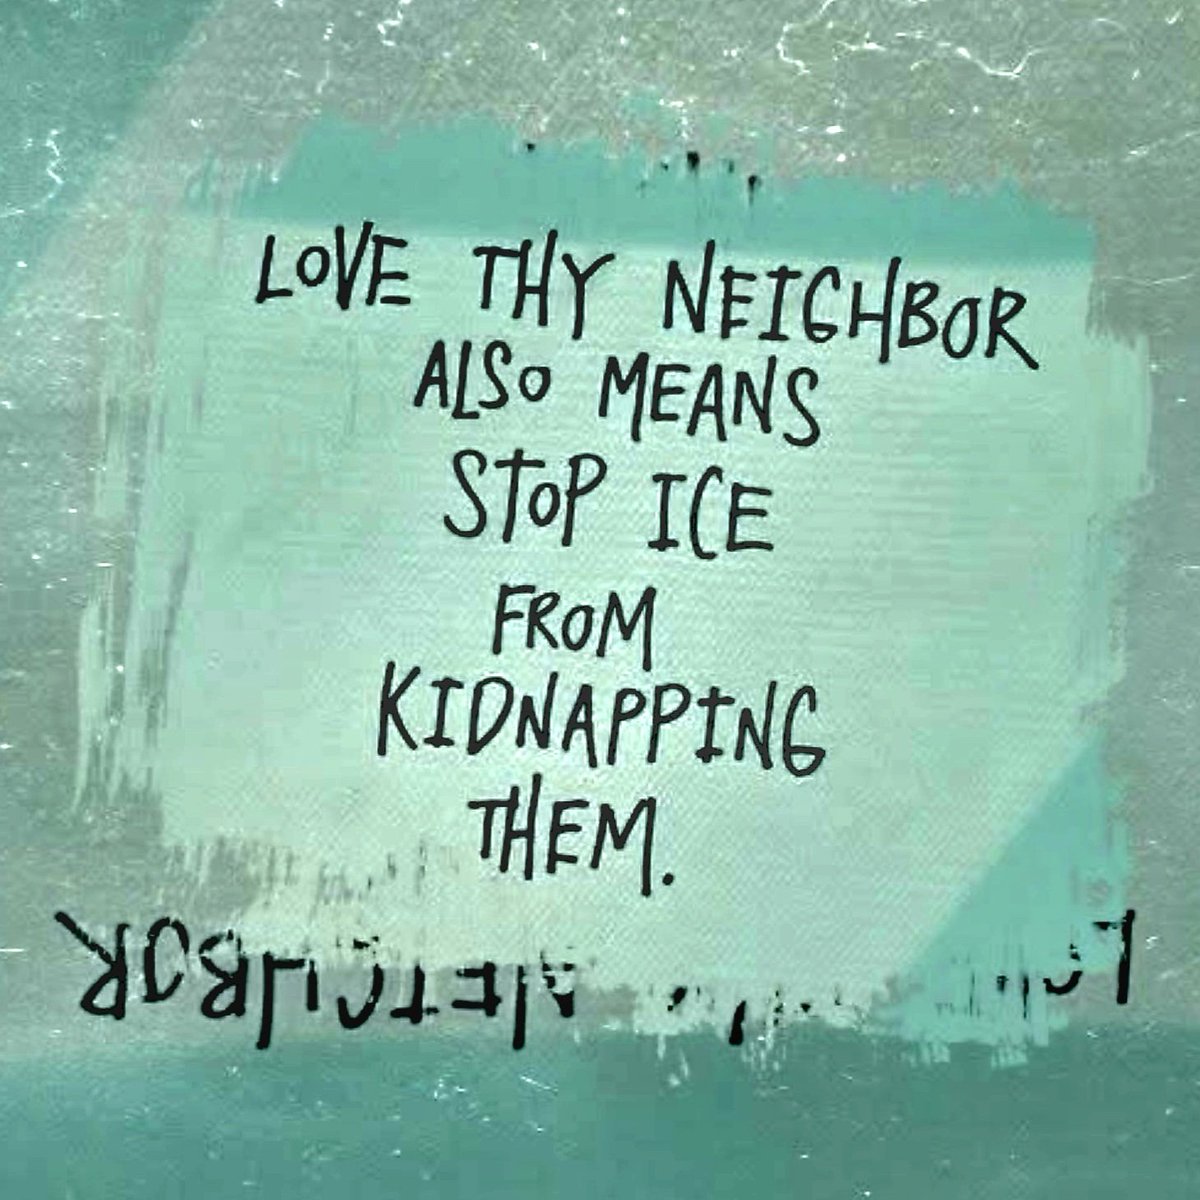 LOVE THY NEIGHBOR
ALSO MEANS
STOP ICE
FROM
KIDNAPPING
THEM.
NEIGHBOR